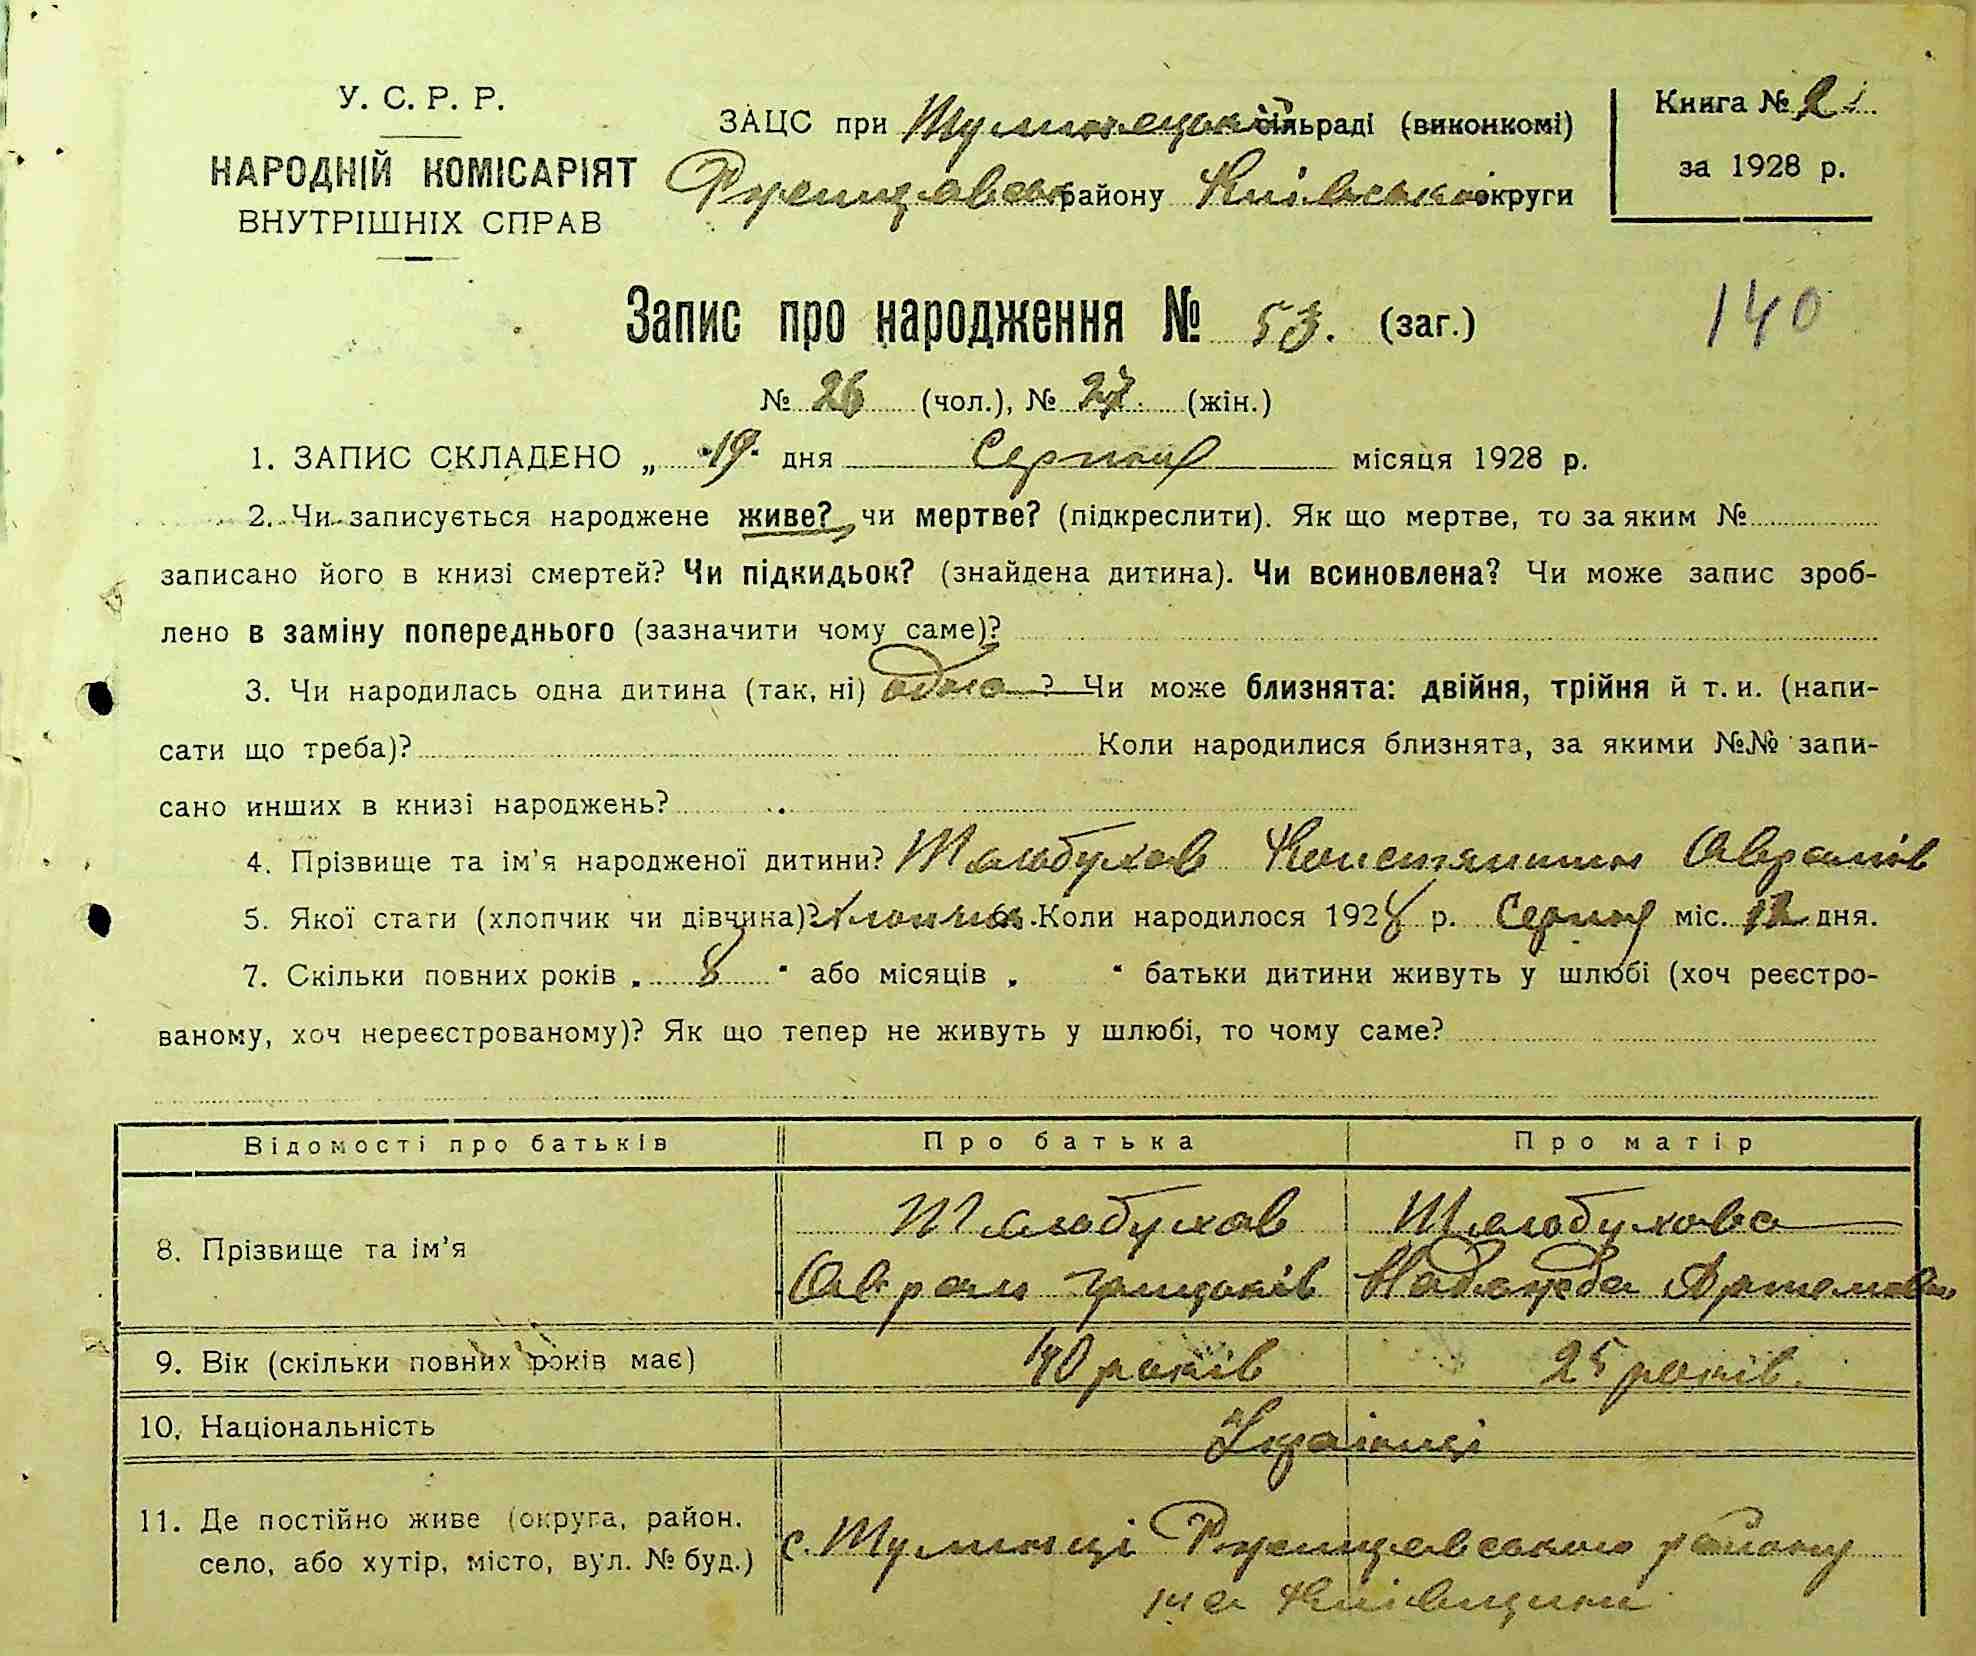 У. С. Р. Р.
НАРОДНІЙ КОМІСАРІЯТ
ВНУТРІШНІХ СПРАВ
ЗАЦС при сільраді (виконкомі)
Ржищевськ району Київської округи
Книга №
за 1928 р.
Запис про народження № 53. (заг.)
140
№ 26 (чол.), № 27 (жін.)
1. ЗАПИС СКЛАДЕНО „ 19 " дня Серпня місяця 1928 р.
2. Чи записується народжене живе? чи мертве? (підкреслити). Як що мертве, то за яким №
записано його в книзі смертей? Чи підкидьок? (знайдена дитина). Чи всиновлена? Чи може запис зроб-
лено в заміну попереднього (зазначити чому саме)?
3. Чи народилась одна дитина (так, ні) одна ? Чи може близнята: двійня, трійня й т. и. (напи-
сати що треба)? Коли народилися близнята, за якими №№ запи-
сано инших в книзі народжень?
4. Прізвище та ім'я народженої дитини? Констянтин Аврамів
5. Якої стати (хлопчик чи дівчина)? хлопчик. Коли народилося 1928 р. Серпня міс. 12 дня.
7. Скільки повних років „ 8 " або місяців „ " батьки дитини живуть у шлюбі (хоч реєстро-
ваному, хоч нереєстрованому)? Як що тепер не живуть у шлюбі, то чому саме?
Відомості про батьків Про батька Про матір
8. Прізвище та ім'я
Аврам Грицьків Надежда Артемовна
9. Вік (скільки повних років має) 40 років 25 років.
10. Національність Українці
11. Де постійно живе (округа, район, село, або хутір, місто, вул. № буд.)
с. Ржищевського району
на Київщині